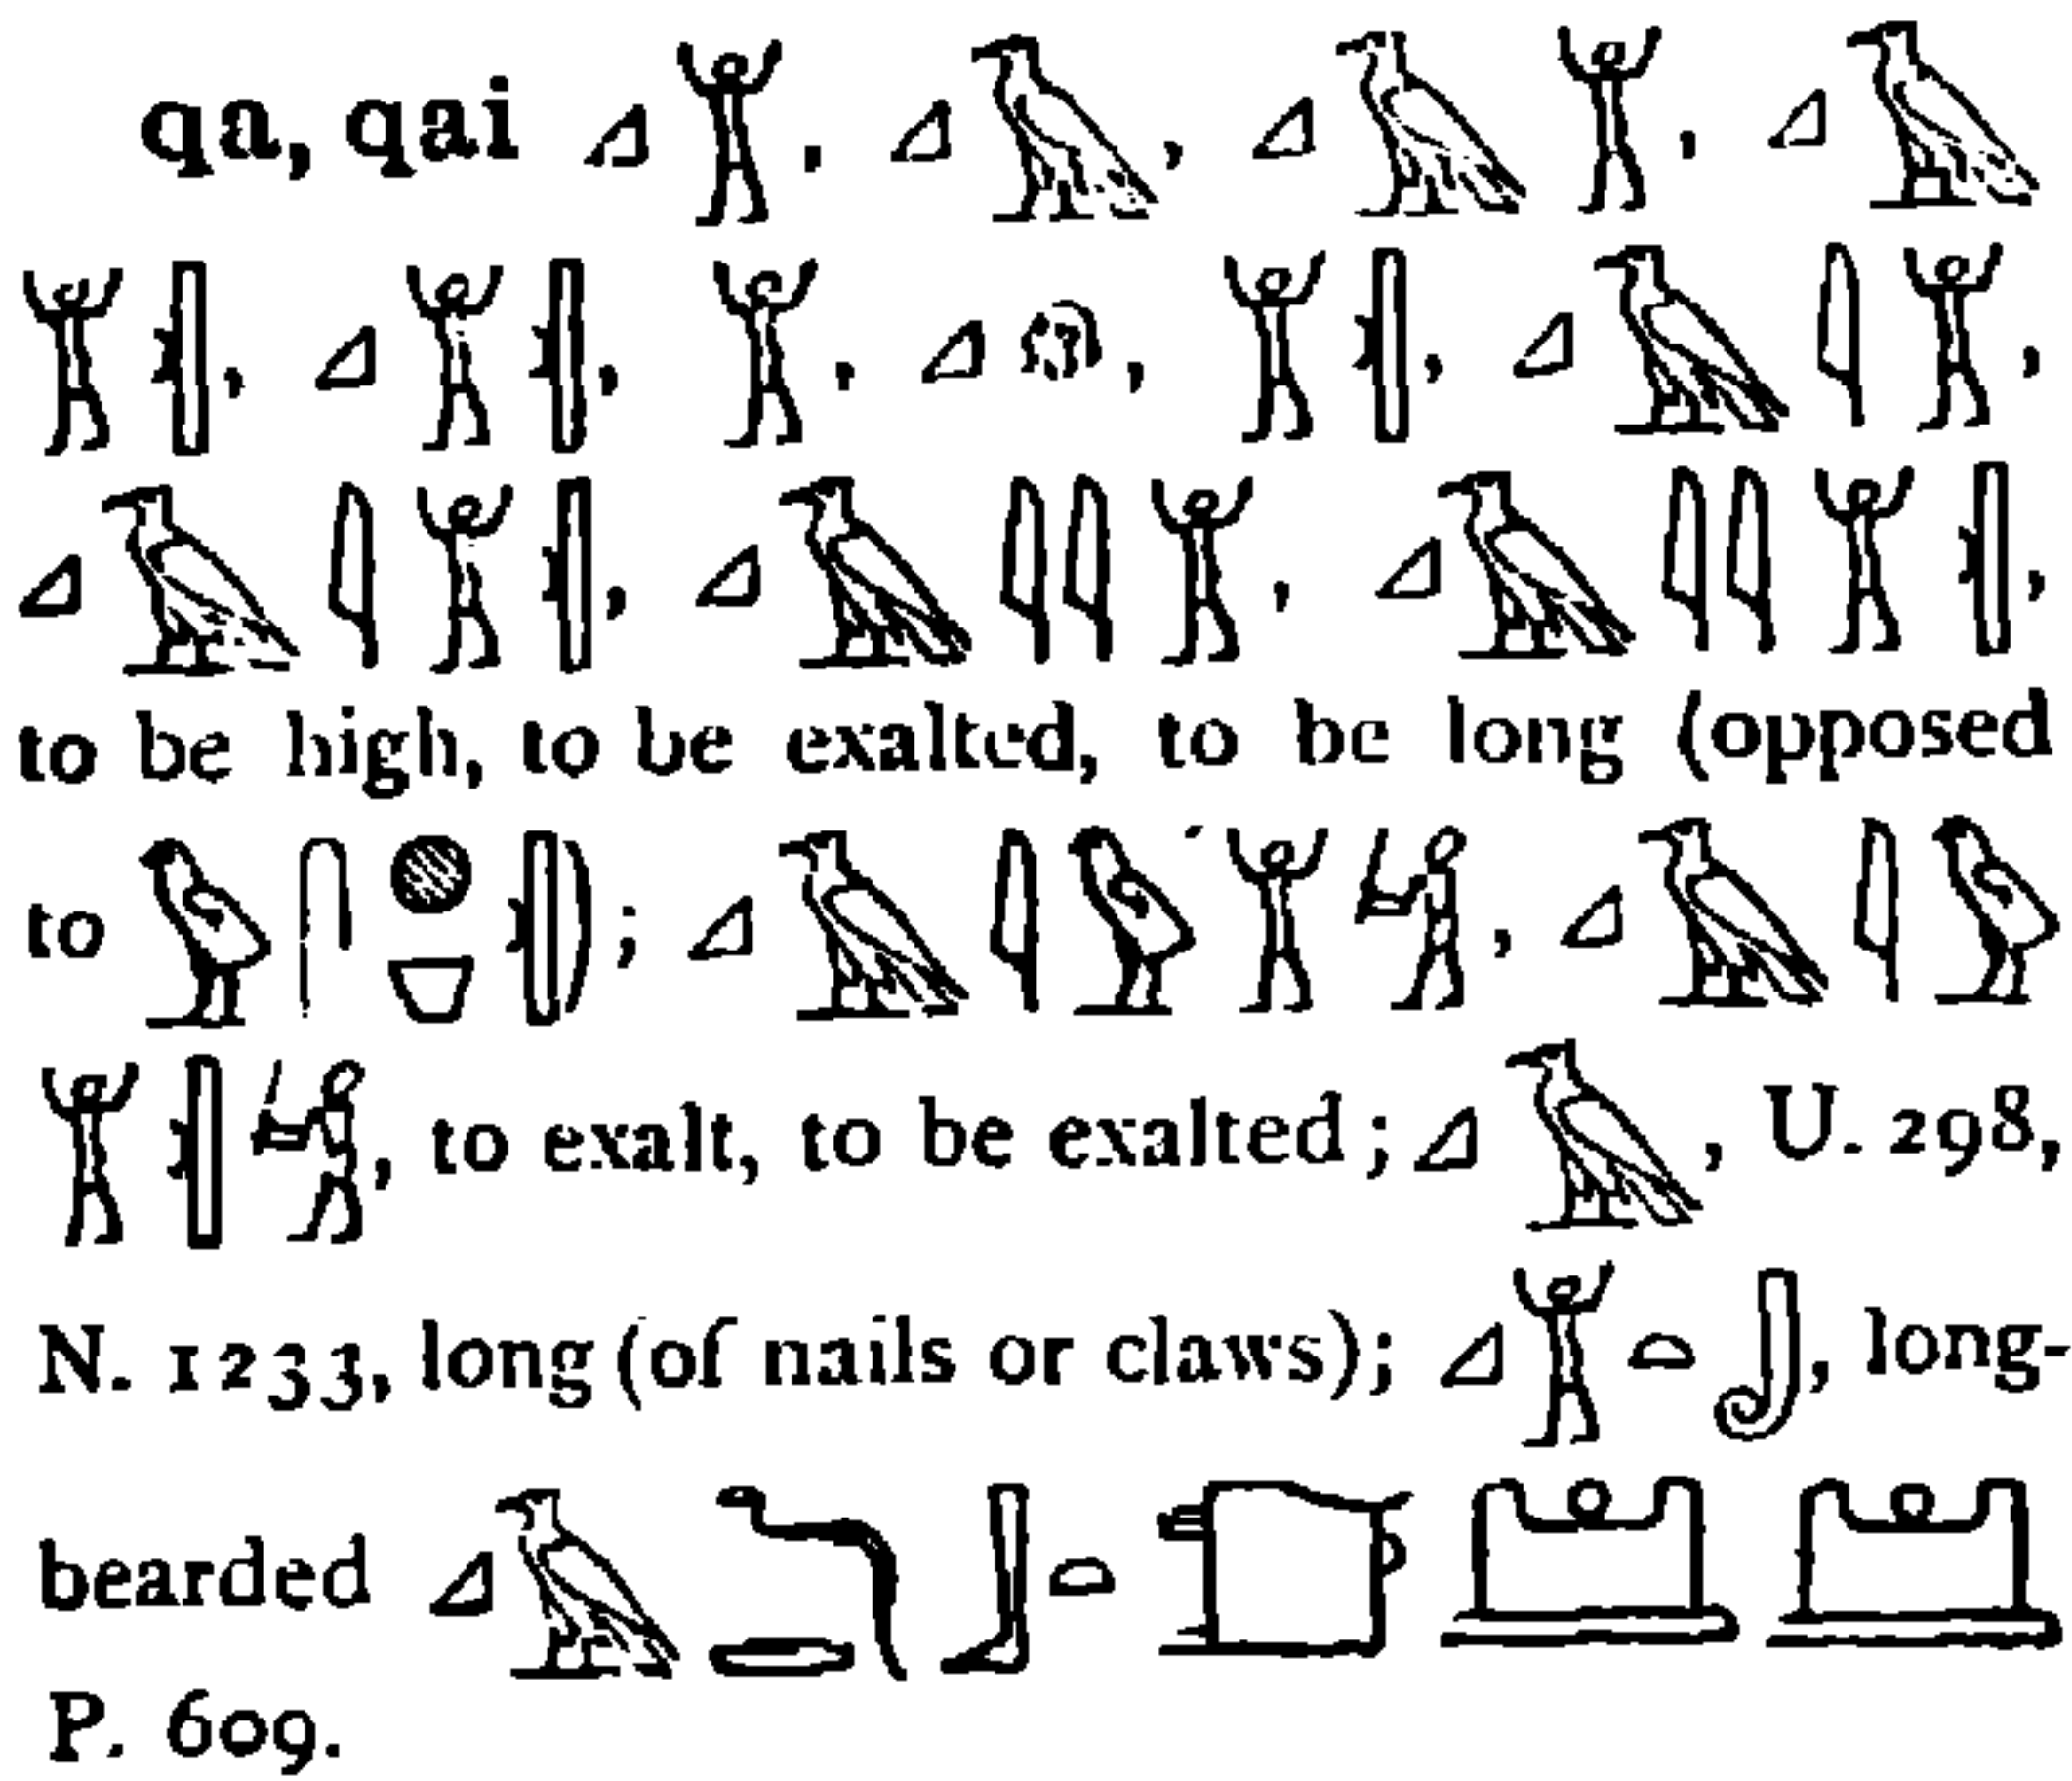 qa, qai 𓈎𓀠, 𓈎𓄿, 𓈎𓄿𓀠, 𓈎𓄿
𓀠𓏛, 𓈎𓀠𓏛, 𓀠, 𓈎, 𓀠𓏛, 𓈎𓄿𓇋𓀠,
𓈎𓄿𓇋𓀠𓏛, 𓈎𓄿𓇋𓇋𓀠, 𓈎𓄿𓇋𓇋𓀠𓏛,
to be high, to be exalted, to be long (opposed
to 𓅱𓋴𓐍𓎺𓏛); 𓈎𓄿𓇋𓅱𓀠𓀜, 𓈎𓄿𓇋𓅱
𓀠𓏛𓀜, to exalt, to be exalted; 𓈎𓄿, U. 298,
N. 1233, long (of nails or claws); 𓈎𓀠𓏏, long-
bearded 𓈎𓄿 𓃀𓏏
P. 609.